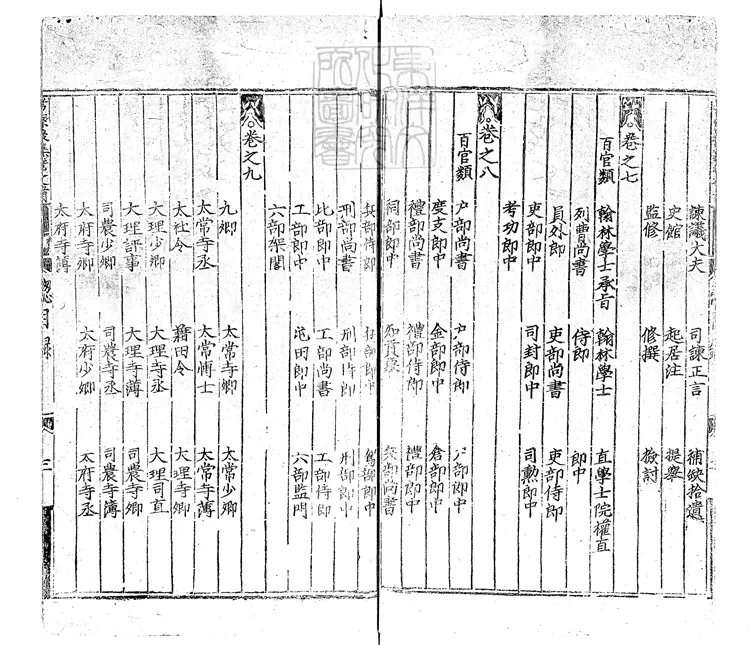 諫議大夫 司諫正言 補缺拾遺
史館 起居注 提舉
監修 修撰 檢討
卷之七
百官類 翰林學士承旨 翰林學士 直學士院權直
列曹尚書 侍郎 郎中
員外郎 吏部尚書 吏部侍郎
吏部郎中 司封郎中 司勲郎中
考功郎中
卷之八
百官類 户部尚書 户部侍郎 户部郎中
度支郎中 金部郎中 倉部郎中
禮部尚書 禮部侍郎 禮部郎中
祠部郎中 知貢舉 兵部尚書
兵部侍郎 兵部郎中 駕部郎中
刑部尚書 刑部侍郎 刑部郎中
比部郎中 工部尚書 工部侍郎
工部郎中 屯田郎中 六部監門
六部架閣
卷之九
九卿 太常寺卿 太常少卿
太常寺丞 太常博士 太常寺薄
太社令 藉田令 大理寺卿
大理少卿 大理寺丞 大理司直
大理評事 大理寺薄 司農寺卿
司農少卿 司農寺丞 司農寺薄
太府寺卿 太府少卿 太府寺丞
太府寺薄
目録
三